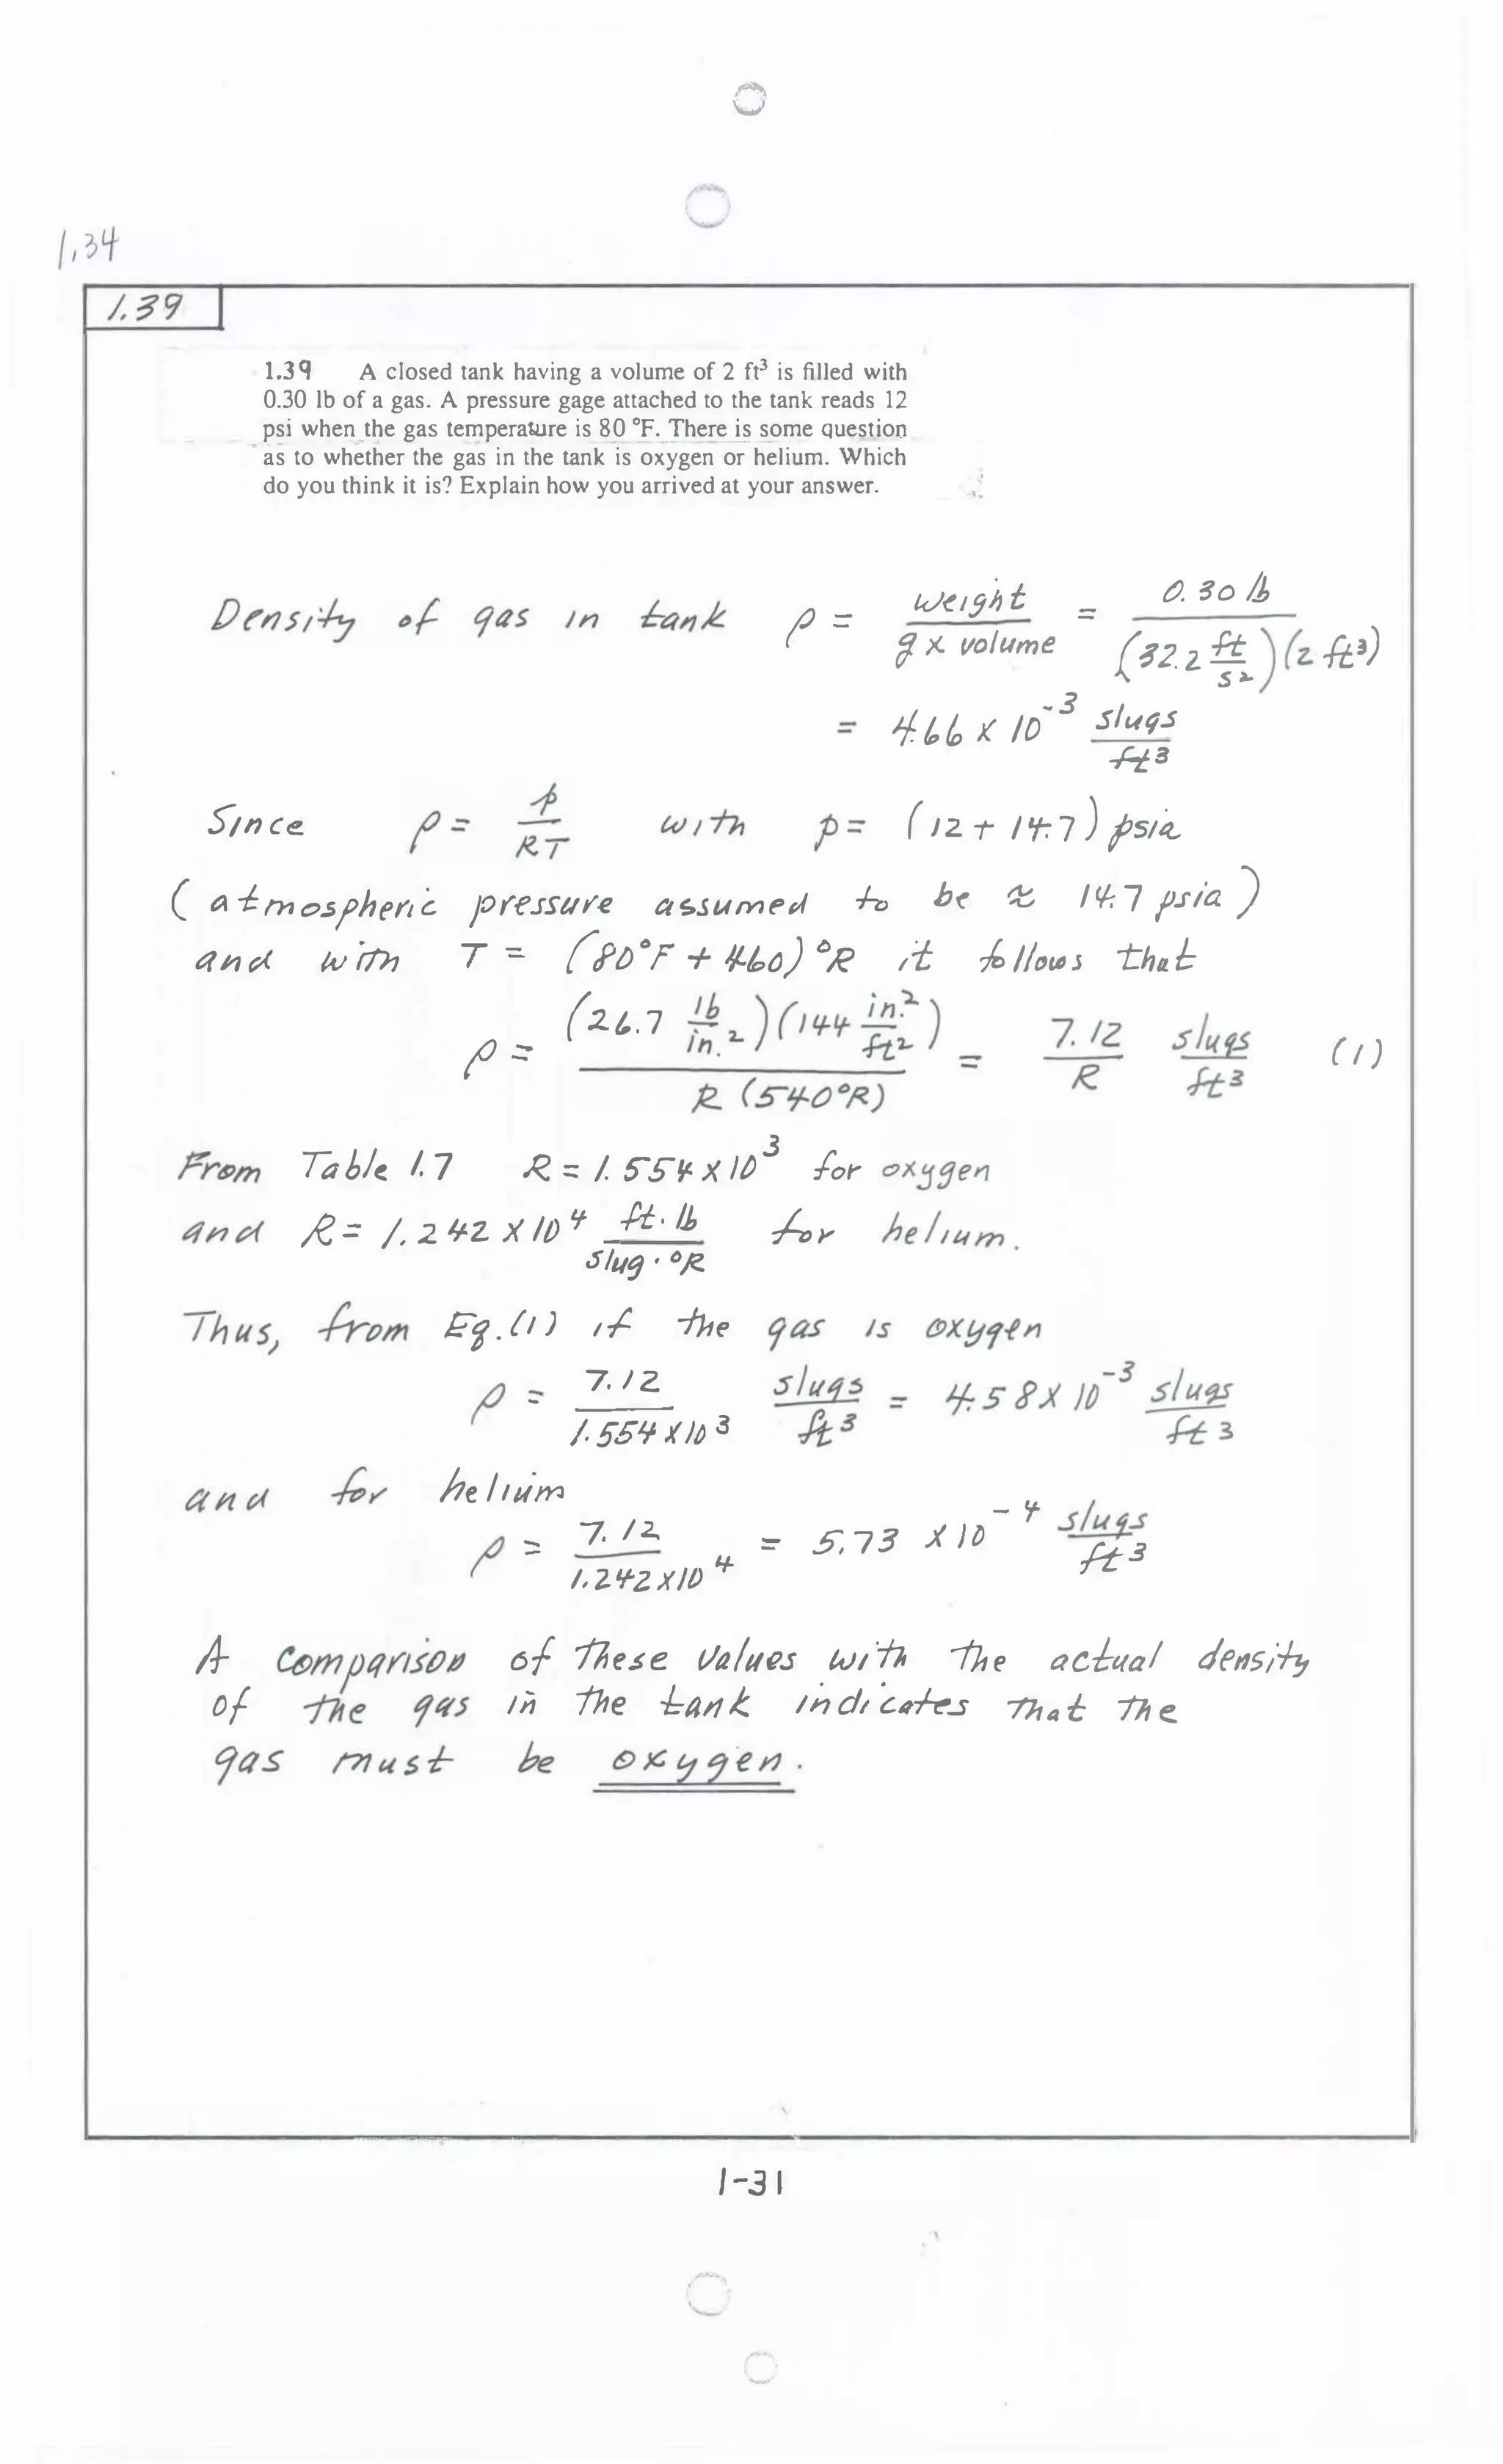 1.34
1.39
1.39 A closed tank having a volume of 2 ft³ is filled with
0.30 lb of a gas. A pressure gage attached to the tank reads 12
psi when the gas temperature is 80 °F. There is some question
as to whether the gas in the tank is oxygen or helium. Which
do you think it is? Explain how you arrived at your answer.
Density of gas in tank ρ = weight / g x volume = 0.30 lb / (32.2 ft/s²)(2 ft³)
= 4.66 x 10⁻³ slugs/ft³
Since ρ = p/RT with p = (12 + 14.7) psia
(atmospheric pressure assumed to be ≈ 14.7 psia)
and with T = (80°F + 460)°R it follows that
ρ = (26.7 lb/in.²)(144 in.²/ft²) / R (540°R) = 7.12/R slugs/ft³ (1)
From Table 1.7 R = 1.554 x 10³ for oxygen
and R = 1.242 x 10⁴ ft·lb/slug·°R for helium.
Thus, from Eq.(1) if the gas is oxygen
ρ = 7.12 / 1.554 x 10³ slugs/ft³ = 4.58 x 10⁻³ slugs/ft³
and for helium
ρ = 7.12 / 1.242 x 10⁴ = 5.73 x 10⁻⁴ slugs/ft³
A comparison of these values with the actual density
of the gas in the tank indicates that the
gas must be oxygen.
1-31